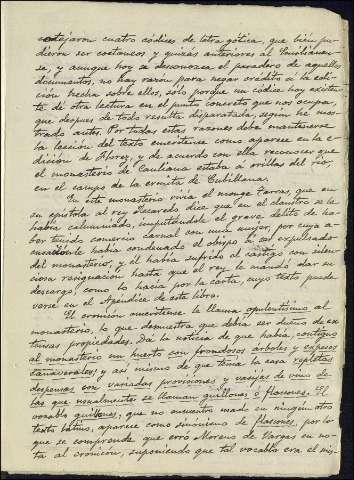 cotejaron cuatro códices de letra gótica, que bien pu-
dieran ser coetaneos y quizás anteriores al Emilianen-
se, y aunque hoy se desconozca el paradero de aquellos
documentos, no hay razón para negar crédito á la edi-
ción hecha sobre ellos, sólo porque un códice hoy existen-
te dé otra lectura en el punto concreto que nos ocupa,
que despues de todo resulta disparatada, según he mos-
trado antes. Por todas estas razones debe mantenerse
la lección del texto emeritense como aparece en la e-
dición de Florez, y de acuerdo con ella reconocer que
el monasterio de Cauliana estaba á orillas del río,
en el campo de la ermita de Cubillana.
En este monasterio vivía el monge Tarras, que en
su epístola al rey Recaredo dice que en el claustro se le
había calumniado, imputándole el grave delito de ha-
ber tenido comercio carnal con una mujer, por cuya a-
cusación le había condenado el obispo á ser expulsado
del monasterio, y él había sufrido el castigo con silen-
ciosa resignación hasta que el rey le mandó dar su
descargo, como lo hacía por la carta, cuyo texto puede
verse en el Apéndice de este libro.
El cronicón emeritense le llama opulentísimo al
monasterio, lo que demuestra que debía ser dueño de ex-
tensas propiedades. Da la noticia de que había, contiguo
al monasterio un huerto con frondosos árboles y espesos
cañaverales; y así mismo de que tenía la casa repletas
despensas con variadas provisiones y vasijas de vino de
las que usualmente se llaman guillonas ó flascones. El
vocablo guillonas, que no encuentro usado en ningún otro
texto latino, aparece como sinónimo de flascones, por lo
que se comprende que erró Moreno de Vargas en no-
ta al cronicón, suponiendo que tal vocablo era el mis-